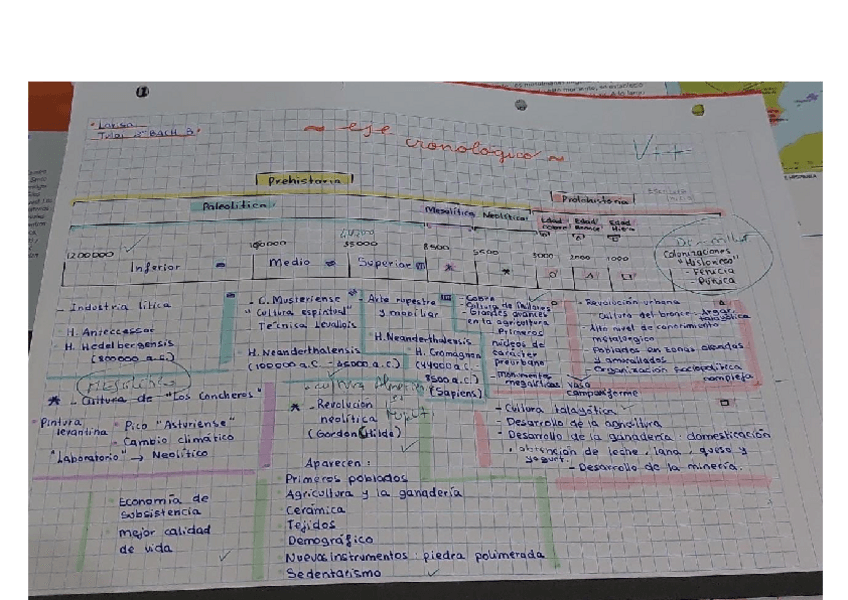 ~ eje
cronológico ~
Prehistoria
Protohistoria
Paleolítico
Mesolítico Neolítico
Edad Cobre Edad Bronce Edad Hierro
1200000
35000
8500
5000
3000 2000 1000
Inferior
Medio
Superior
Colonizaciones
"Históricas"
- Fenicia
- Púnica
- Industria lítica
H. Anteccessor
H. Hedelbergensis
- C. Musteriense
"Cultura espiritual"
- Técnica Levalois
H. Neanderthalensis
- Arte rupestre
y mobiliar
H. Neanderthalensis
H. Cromagnon
(Sapiens)
- Cobre
- Cultura de Millares
- Grandes avances
en la agricultura
- Primeros
núcleos de
carácter
preurbano
- Monumentos
megalíticos
vaso
campaniforme
- Revolución urbana
Cultura del bronce: Argar,
talayótica
- Alto nivel de conocimiento
metalúrgico
- Poblados en zonas elevadas
y amurallados
- Organización sociopolítica
compleja
- Cultura de "Los Concheros"
Pintura
levantina
- Pico "Asturiense"
- Cambio climático
"Laboratorio" → Neolítico
- Revolución
neolítica
(Gordon Childe)
- Cultura talayótica
- Desarrollo de la agricultura
- Desarrollo de la ganadería: domesticación
obtención de leche, lana, queso y
yogurt.
- Desarrollo de la minería.
Aparecen:
Primeros poblados
Agricultura y la ganadería
Cerámica
Tejidos
Demográfico
Nuevos instrumentos: piedra polimerada
Sedentarismo
Economía de
subsistencia
Mejor calidad
de vida